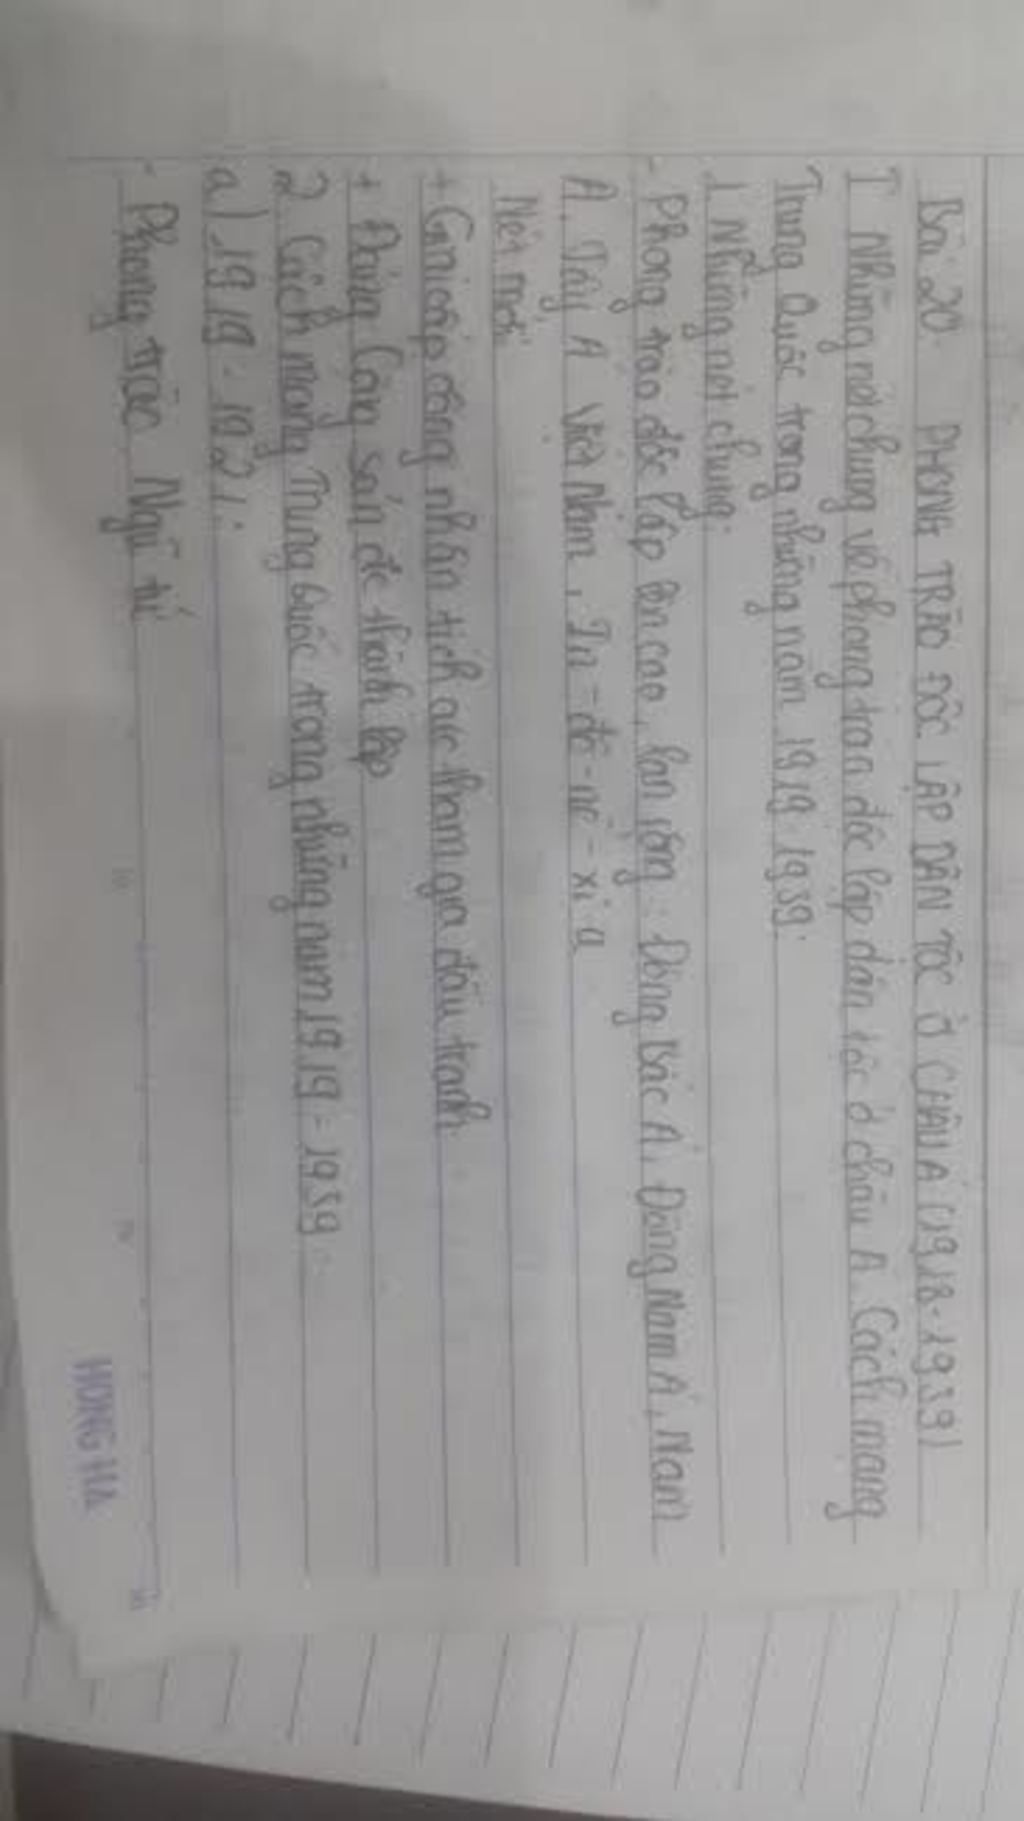 Bài 20: PHONG TRÀO ĐỘC LẬP DÂN TỘC Ở CHÂU Á (1918-1939)
I Những nét chung về phong trào độc lập dân tộc ở châu Á. Cách mạng
Trung Quốc trong những năm 1919-1939:
1 Những nét chung:
- Phong trào độc lập lên cao, lan rộng: Đông Bắc Á, Đông Nam Á, Nam
Á, Tây Á Việt Nam, In-đô-nê-xi-a
Nét mới
+ Giai cấp công nhân tích cực tham gia đấu tranh.
+ Đảng Cộng sản đc thành lập
2 Cách mạng Trung Quốc trong những năm 1919-1939:
a) 1919-1921:
- Phong trào Ngũ tứ
HONG HA